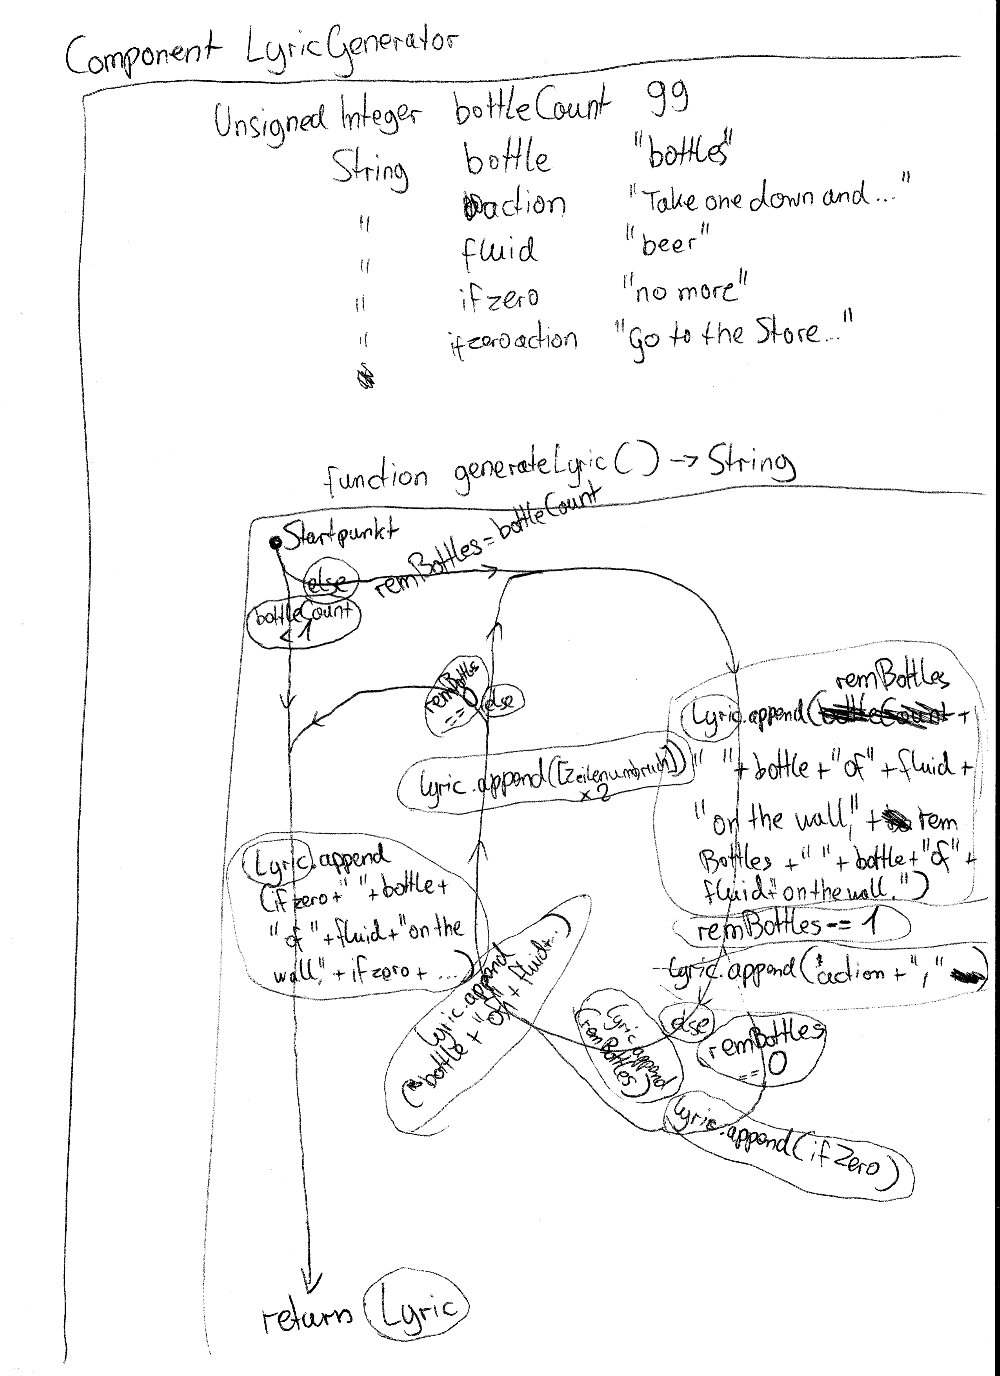 Component LyricGenerator
Unsigned Integer bottleCount 99
String bottle "bottles"
" action "Take one down and..."
" fluid "beer"
" ifzero "no more"
" ifzeroaction "Go to the Store..."
function generateLyric() -> String
Startpunkt
else
remBottles = bottleCount
bottleCount
< 1
remBottle
== 0
else
remBottles
Lyric.append( +
" " + bottle + "of" + fluid +
"on the wall," + rem
Bottles + " " + bottle + "of" +
fluid + "on the wall,")
lyric.append([Zeilenumbruch])
x2
remBottles -= 1
Lyric.append
(ifzero + " " + bottle +
"of" + fluid + "on the
wall," + ifzero + ...)
lyric.append(action + ","
lyric.append
(" bottle + "of" + fluid + ..)
lyric.append
(remBottles)
else
remBottles
== 0
lyric.append(ifZero)
return Lyric